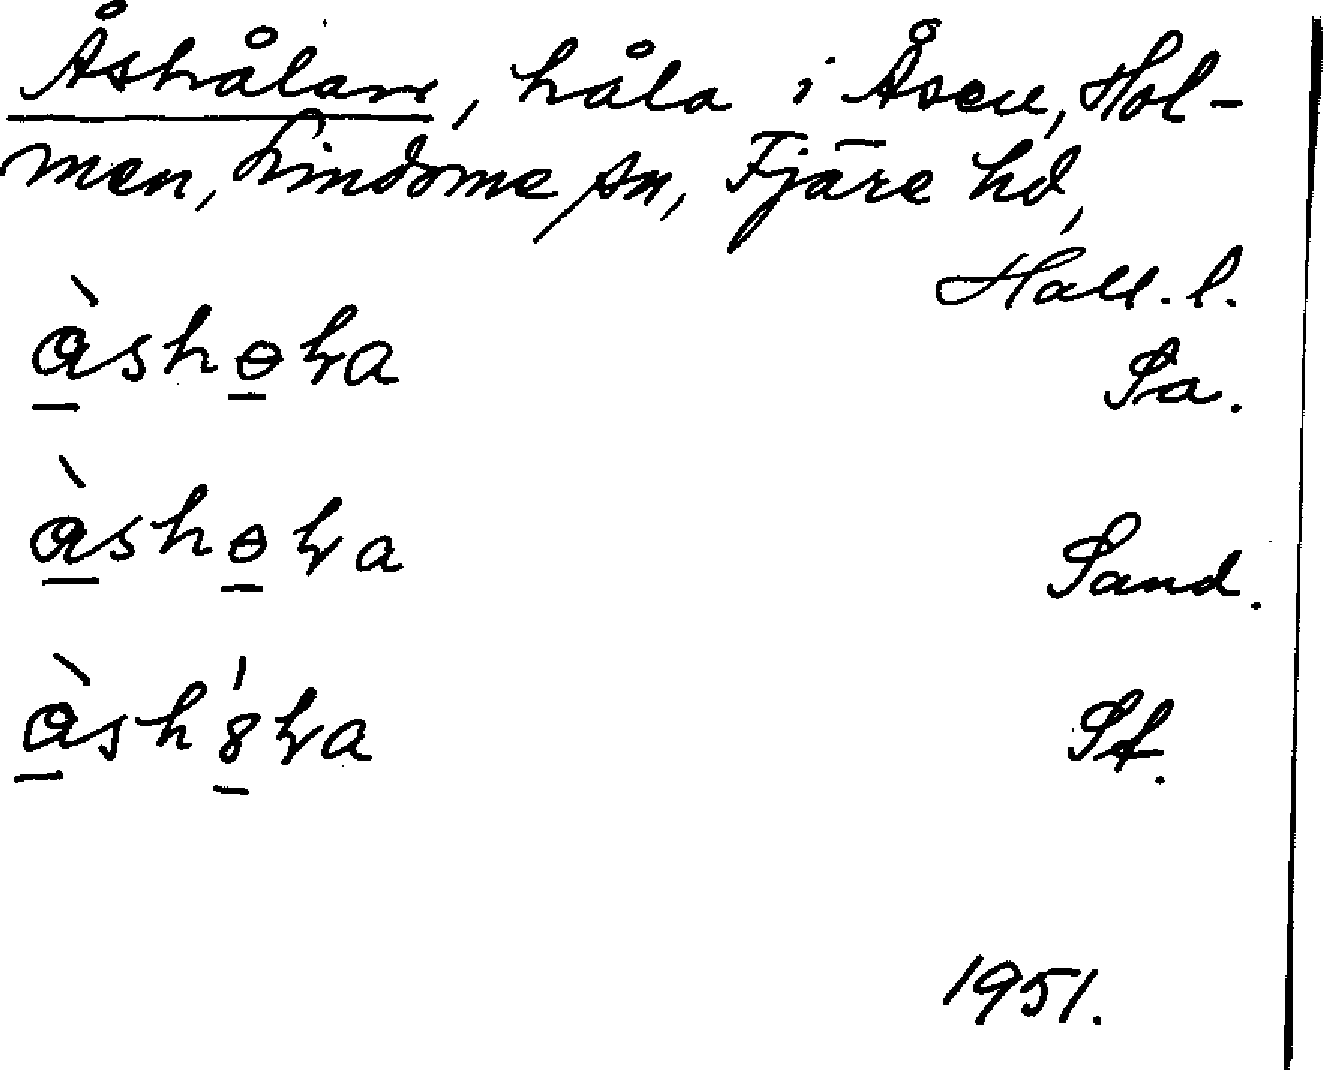 Åshålan, håla i Åsen, Hol-
men, Lindome sn, Fjäre hd,
Hall. l.
àshɵɫa Sa.
àshɵɫa Sand.
àsh8́ɫa St.
1951.